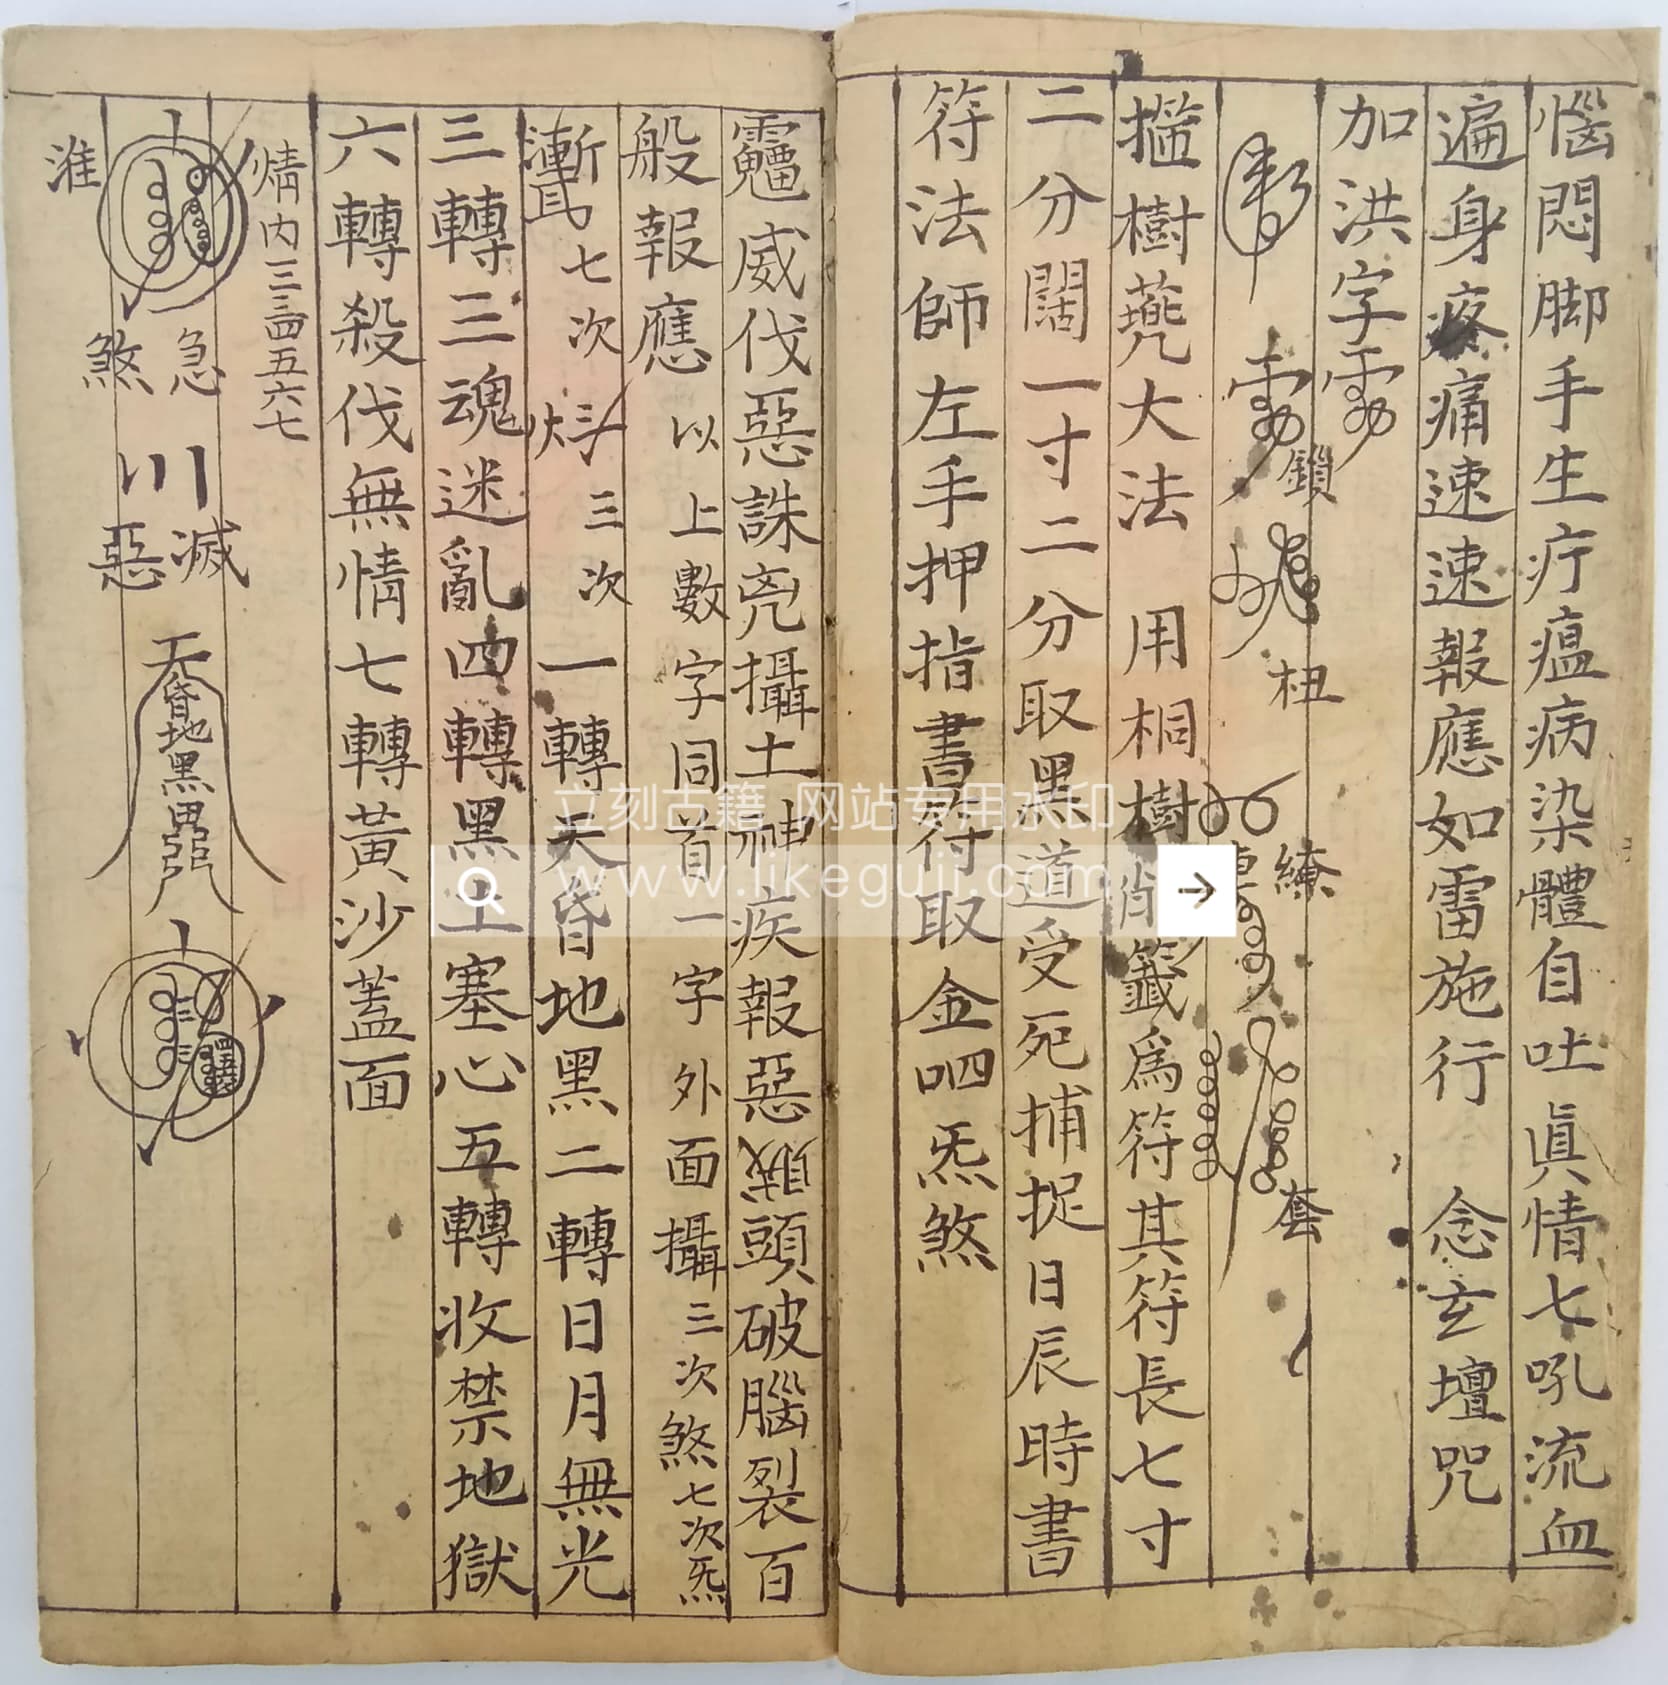 惱悶脚手生疔瘟病染體自吐眞情七吼流血
遍身疼痛速速報應如雷施行 念玄壇咒
加洪字
鎖 杻 繚 套
樹 大法 用桐樹削籤爲符其符長七寸
二分闊一寸二分取黑道受死捕捉日辰時書
符法師左手押指書符取金呬炁煞
威伐惡誅兇攝土神疾報惡 頭破腦裂百
般報應 以上數字同首一字外面攝三次煞七次炁
七次 三次 一轉天昏地黑二轉日月無光
三轉三魂迷亂四轉黑土塞心五轉收禁地獄
六轉殺伐無情七轉黃沙蓋面
情内一二三四五六七
急 滅
天昏地黑
淮 煞 惡
立刻古籍 网站专用水印
www.likeguji.com